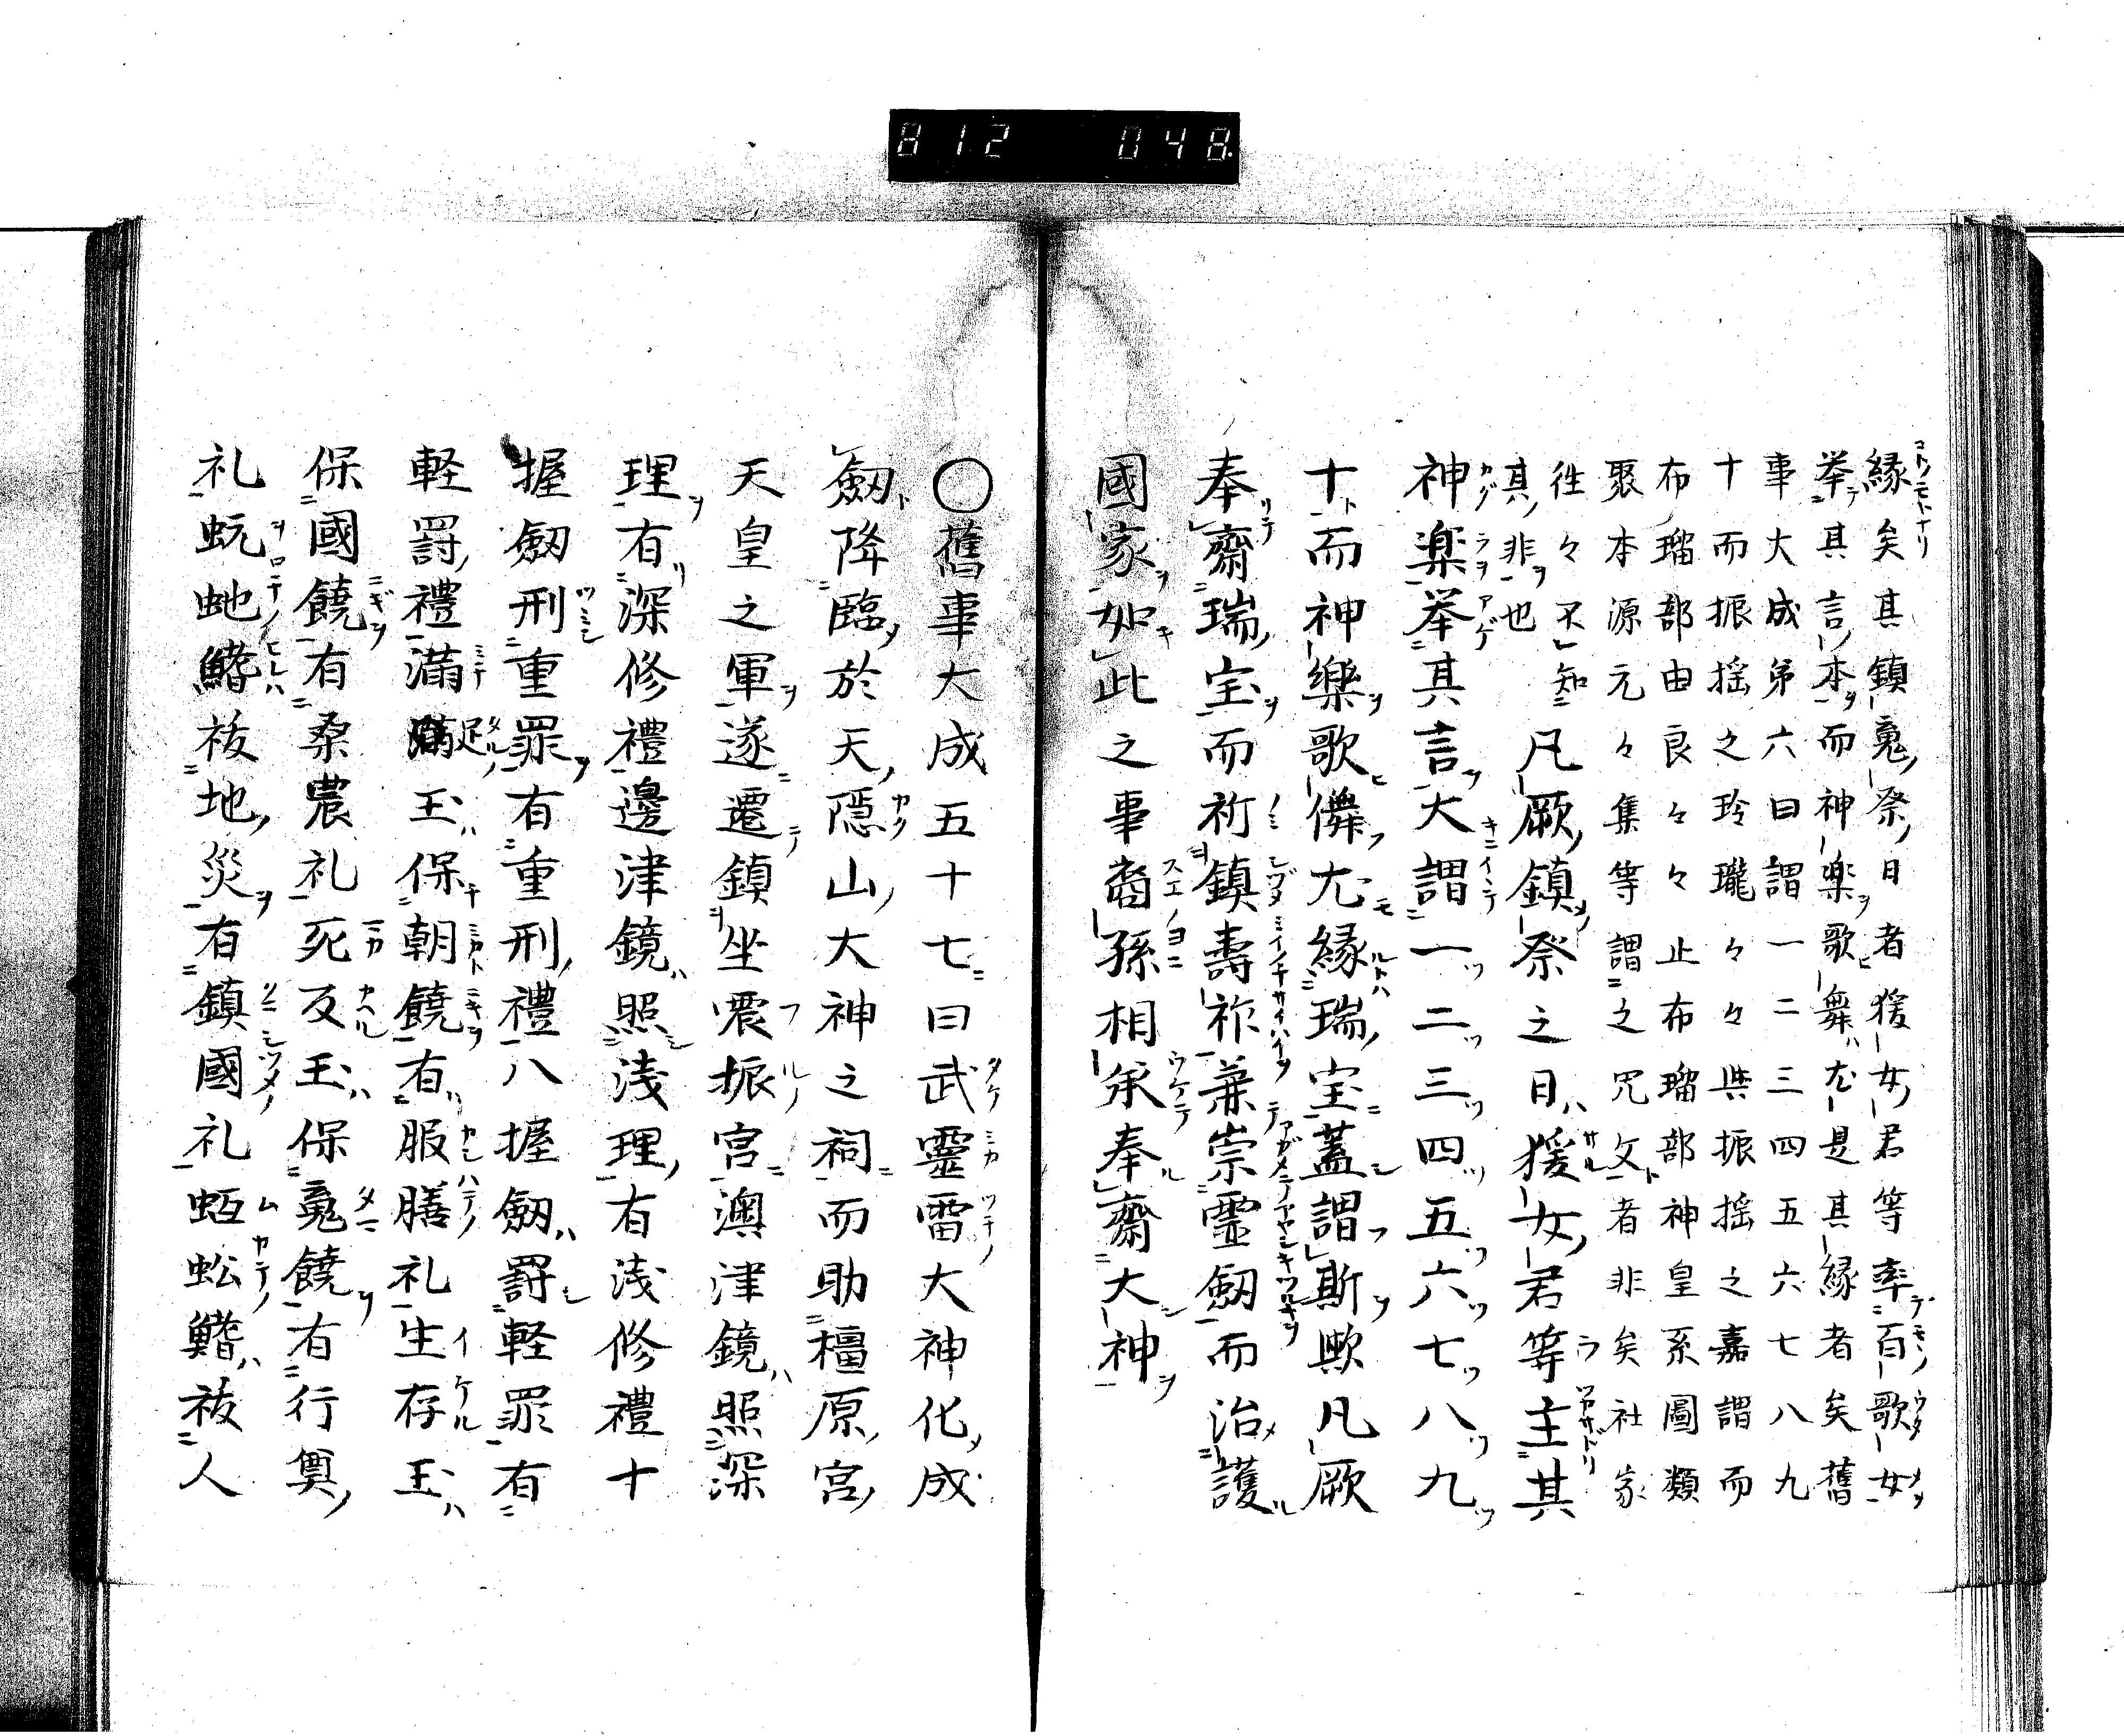 812 048
縁矣其鎮䰟祭日者猨女君等率百歌女
挙其言本而神楽歌舞尤是其縁者矣舊
事大成第六曰謂一二三四五六七八九
十而振揺之玲瓏々々與振揺之嘉謂而
布瑠部由良々々止布瑠部神皇系圖類
聚本源元々集等謂之咒文者非矣社家
往々不知
其非也
凡厥鎮祭之日猨女君等主其
神楽挙其言大謂一二三四五六七八九
十而神樂歌儛尤縁瑞宝蓋謂斯歟凡厥
奉齋瑞宝而祈鎮壽祚兼崇霊劔而治護
國家如此之事裔孫相承奉齋大神
〇舊事大成五十七曰武靈雷大神化成
劔降臨於天隠山大神之祠而助橿原宮
天皇之軍遂遷鎮坐震振宮澳津鏡照深
理有深修禮邊津鏡照浅理有浅修禮十
握劔刑重罪有重刑禮八握劔罸軽罪有
軽罸禮満足玉保朝饒有服膳礼生存玉
保國饒有桑農礼死反玉保䰟饒有行奠
礼蚖虵鰭祓地災有鎮國礼蚅蚣鰭祓人